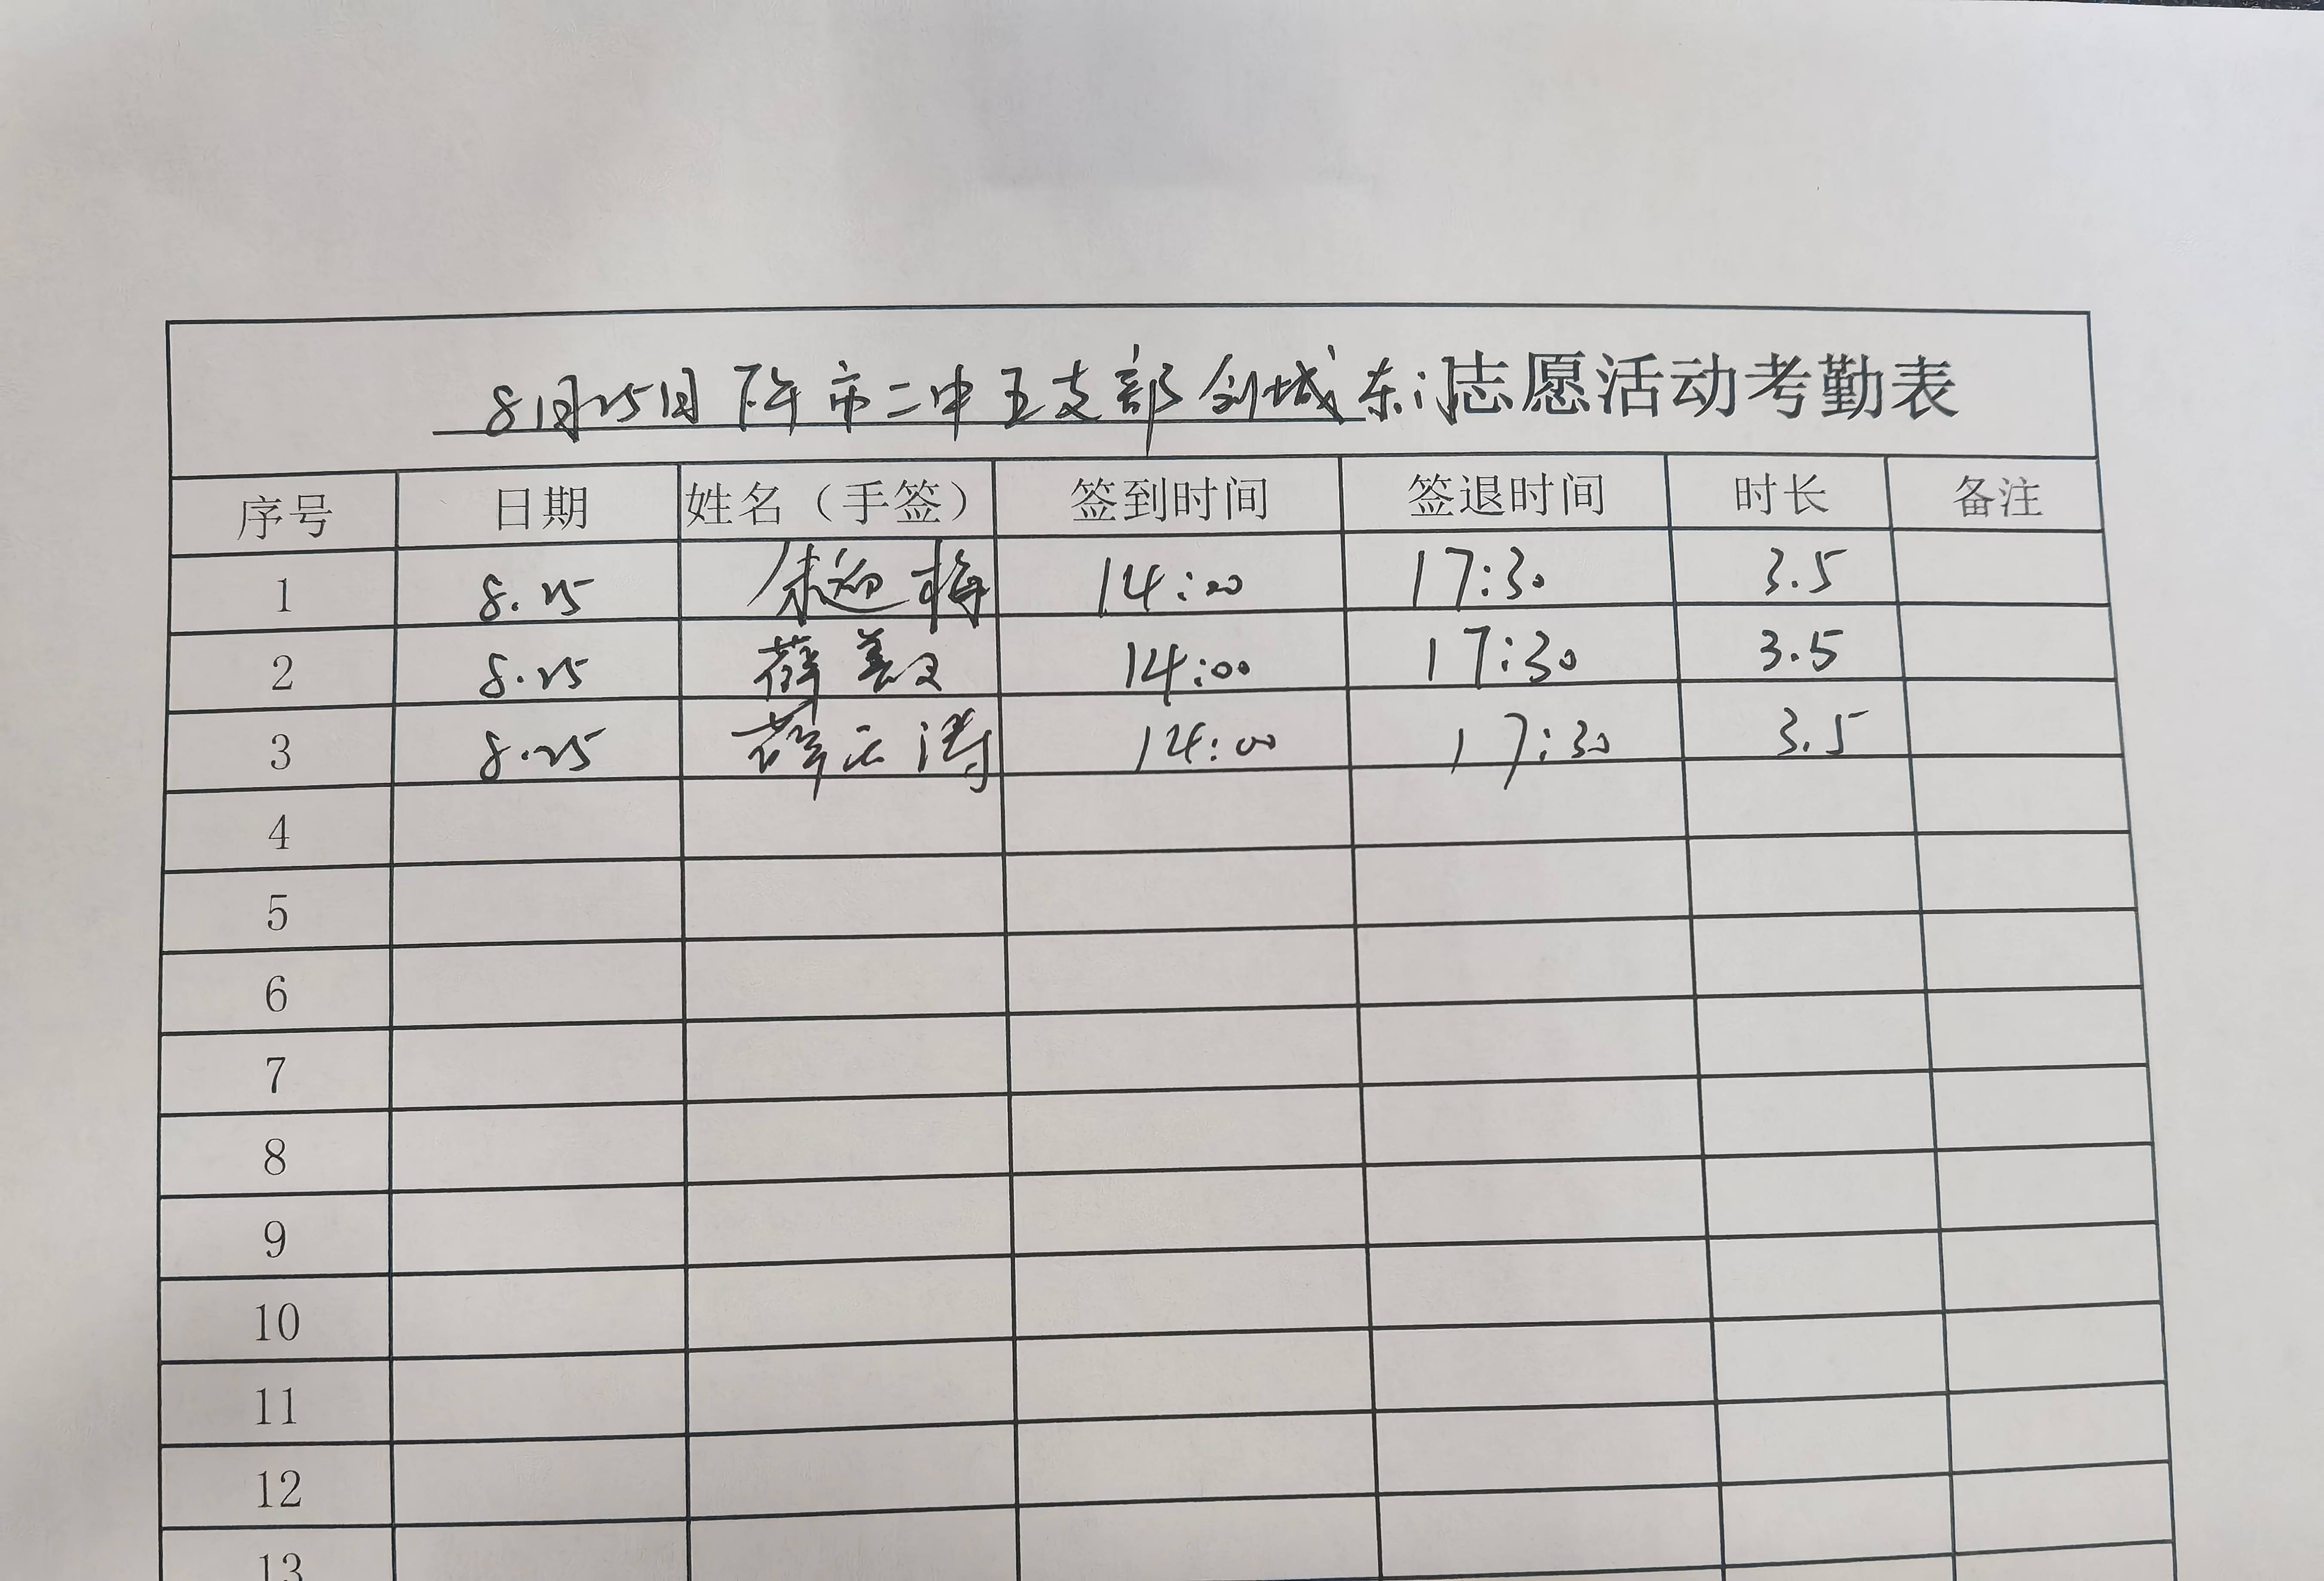 8月25日下午市二中五支部创城东门志愿活动考勤表
序号 日期 姓名（手签） 签到时间 签退时间 时长 备注
1 8.25 朱迎梅 14:00 17:30 3.5
2 8.25 薛 14:00 17:30 3.5
3 8.25 薛 涛 14:00 17:30 3.5
4
5
6
7
8
9
10
11
12
13